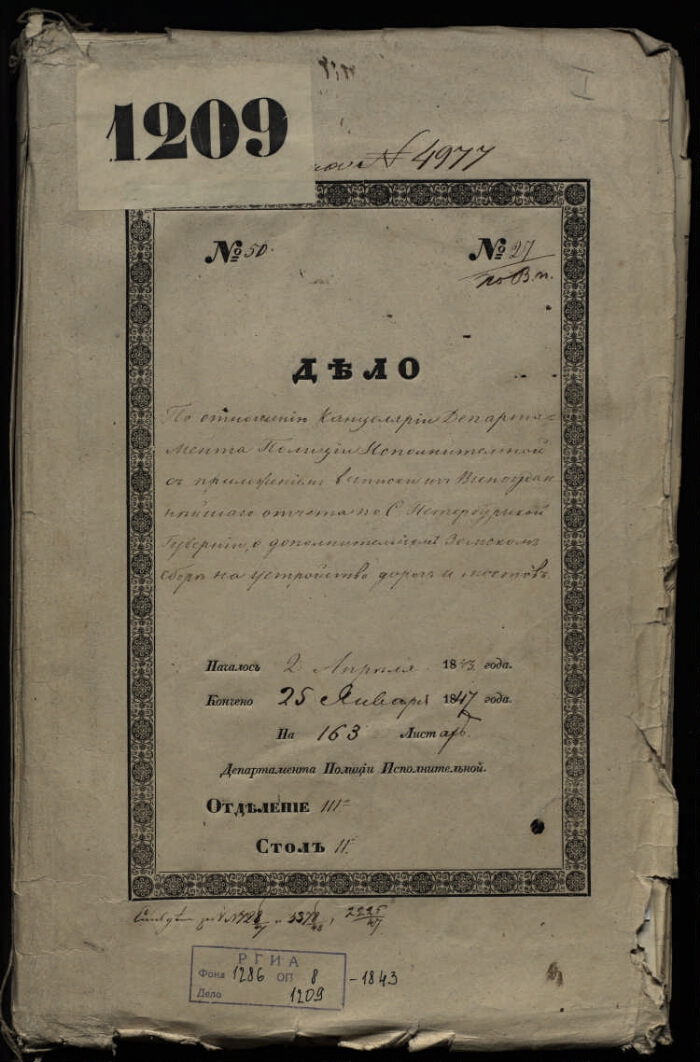 I
1209
N 4977
№ 50.
№ 27
по В. п.
ДѢЛО
По отношенію Канцеляріи Департа-
мента Полиціи Исполнительной
съ приложеніемъ выписки изъ Всеподдан
нѣйшаго отчета по С. Петербургской
Губерніи, о дополнительномъ Земскомъ
сборѣ на устройство дорогъ и мостовъ.
Началось 2 Апрѣля 1843 года.
Кончено 25 Января 1847 года.
На 163 Листахъ
Департамента Полиціи Исполнительной.
ОТДѢЛЕНІЕ III
СТОЛЪ II
2225/47
РГИА
Фонд 1286 ОП 8 - 1843
Дело 1209